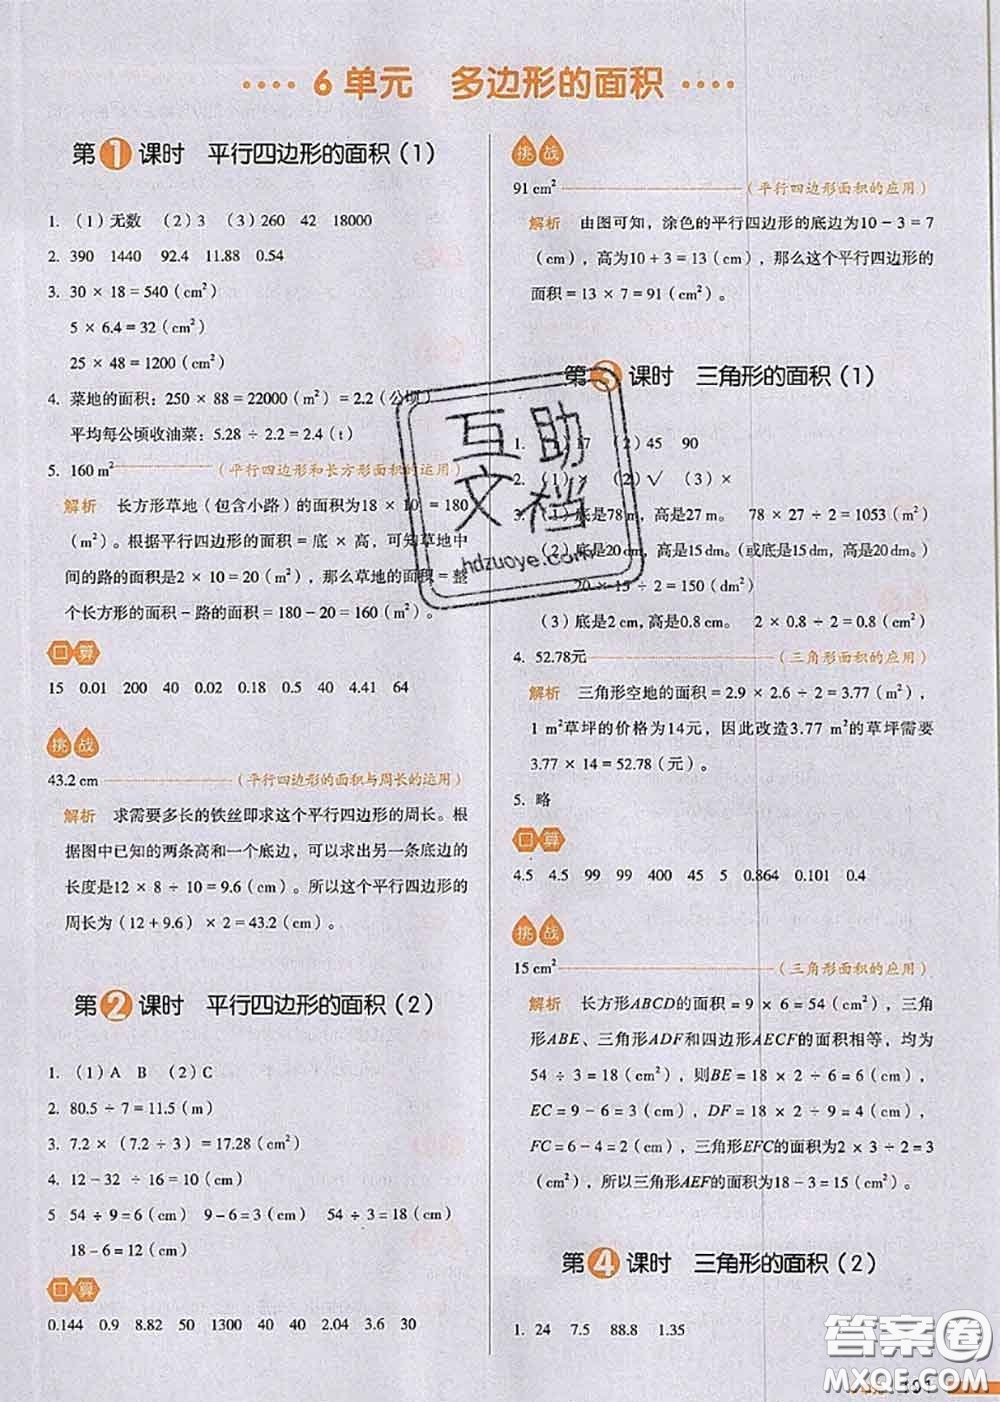 6 单元 多边形的面积
第1课时 平行四边形的面积（1）
1. （1）无数 （2）3 （3）260 42 18000
2. 390 1440 92.4 11.88 0.54
3. 30 × 18 = 540（cm²）
5 × 6.4 = 32（cm²）
25 × 48 = 1200（cm²）
4. 菜地的面积：250 × 88 = 22000（m²）= 2.2（公顷）
平均每公顷收油菜：5.28 ÷ 2.2 = 2.4（t）
5. 160 m² （平行四边形和长方形面积的运用）
解析 长方形草地（包含小路）的面积为18 × 10 = 180
（m²）。根据平行四边形的面积 = 底 × 高，可知草地中
间的路的面积是2 × 10 = 20（m²），那么草地的面积 = 整
个长方形的面积－路的面积 = 180－20 = 160（m²）。
口算
15 0.01 200 40 0.02 0.18 0.5 40 4.41 64
挑战
43.2 cm （平行四边形的面积与周长的运用）
解析 求需要多长的铁丝即求这个平行四边形的周长。根
据图中已知的两条高和一个底边，可以求出另一条底边的
长度是12 × 8 ÷ 10 = 9.6（cm）。所以这个平行四边形的
周长为（12 + 9.6）× 2 = 43.2（cm）。
第2课时 平行四边形的面积（2）
1. （1）A B （2）C
2. 80.5 ÷ 7 = 11.5（m）
3. 7.2 ×（7.2 ÷ 3）= 17.28（cm²）
4. 12－32 ÷ 16 = 10（cm）
5 54 ÷ 9 = 6（cm） 9－6 = 3（cm） 54 ÷ 3 = 18（cm）
18－6 = 12（cm）
口算
0.144 0.9 8.82 50 1300 40 40 2.04 3.6 30
挑战
91 cm² （平行四边形面积的应用）
解析 由图可知，涂色的平行四边形的底边为10－3 = 7
（cm），高为10 + 3 = 13（cm），那么这个平行四边形的
面积 = 13 × 7 = 91（cm²）。
第3课时 三角形的面积（1）
1. 17 （2）45 90
2. （1）× （2）√ （3）×
3. （1）底是78 m，高是27 m。 78 × 27 ÷ 2 = 1053（m²）
（2）底是20 dm，高是15 dm。（或底是15 dm，高是20 dm。）
20 × 15 ÷ 2 = 150（dm²）
（3）底是2 cm，高是0.8 cm。 2 × 0.8 ÷ 2 = 0.8（cm²）
4. 52.78元 （三角形面积的应用）
解析 三角形空地的面积 = 2.9 × 2.6 ÷ 2 = 3.77（m²），
1 m²草坪的价格为14元，因此改造3.77 m²的草坪需要
3.77 × 14 = 52.78（元）。
5. 略
口算
4.5 4.5 99 99 400 45 5 0.864 0.101 0.4
挑战
15 cm² （三角形面积的应用）
解析 长方形ABCD的面积 = 9 × 6 = 54（cm²），三角
形ABE、三角形ADF和四边形AECF的面积相等，均为
54 ÷ 3 = 18（cm²），则BE = 18 × 2 ÷ 6 = 6（cm），
EC = 9－6 = 3（cm），DF = 18 × 2 ÷ 9 = 4（cm），
FC = 6－4 = 2（cm），三角形EFC的面积为2 × 3 ÷ 2 = 3
（cm²），所以三角形AEF的面积为18－3 = 15（cm²）。
第4课时 三角形的面积（2）
1. 24 7.5 88.8 1.35
互助
文档
hdzuoye.com
答案圈
MXQE.COM